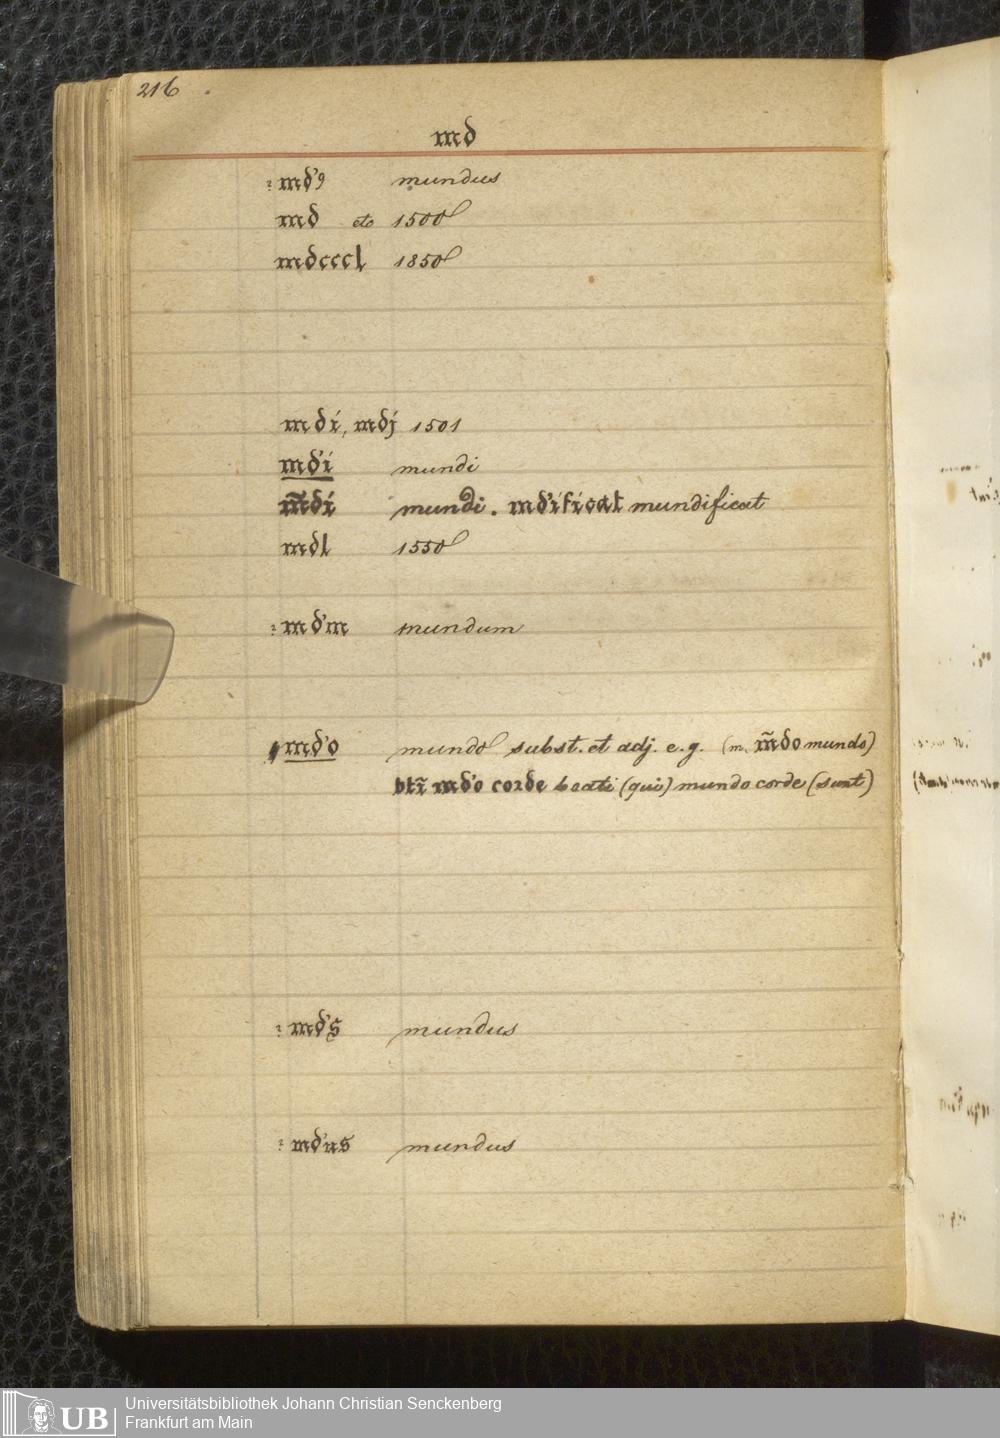 216
md
? md'9 mundus
md etc 1500
mdcccl 1850
mdi, mdj 1501
md'i mundi
m̃di mundi. md'ificat mundificat
mdl 1550
? md'm mundum
md'o mundo subst. et adj. e.g. (m, m̃do mundo)
bti̅ md'o corde beati (qui) mundo corde (sunt)
? md's mundus
? md'us mundus
UB Universitätsbibliothek Johann Christian Senckenberg
Frankfurt am Main